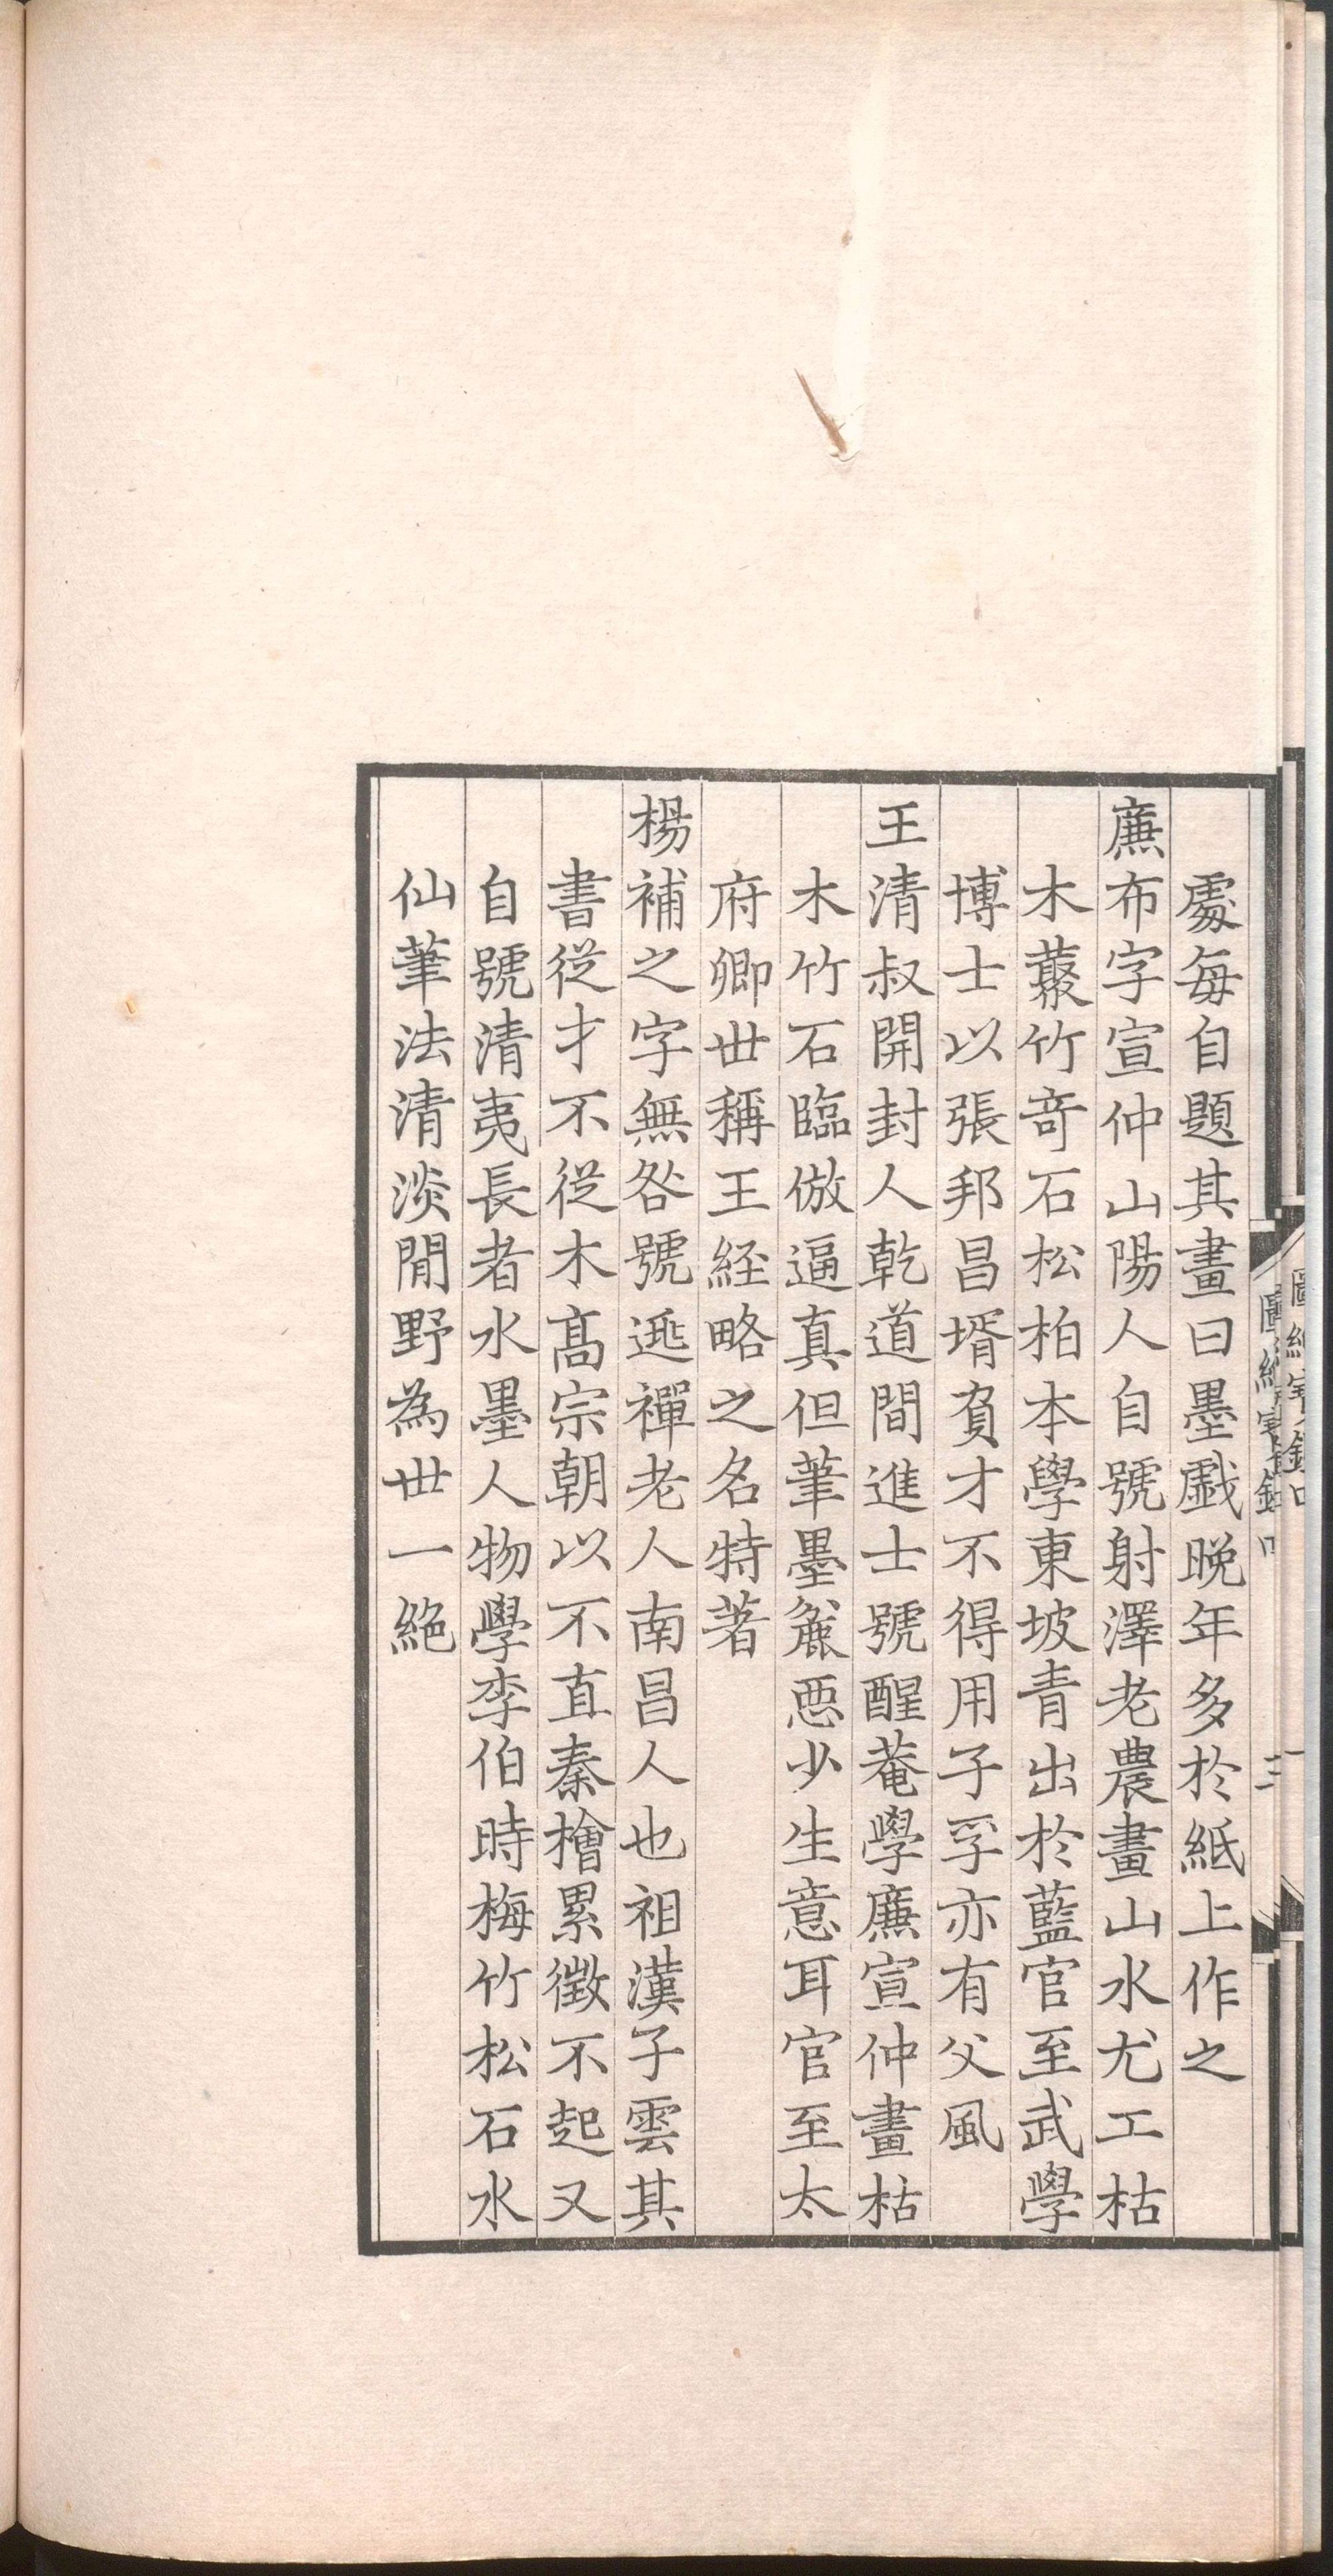 處每自題其畫曰墨戲晚年多於紙上作之
廉布字宣仲山陽人自號射澤老農畫山水尤工枯
木叢竹奇石松柏本學東坡青出於藍官至武學
博士以張邦昌壻負才不得用子孚亦有父風
王清叔開封人乾道間進士號醒菴學廉宣仲畫枯
木竹石臨倣逼真但筆墨麄惡少生意耳官至太
府卿世稱王経略之名特著
楊補之字無咎號逃禪老人南昌人也祖漢子雲其
書從才不從木髙宗朝以不直秦檜累徵不起又
自號清夷長者水墨人物學李伯時梅竹松石水
仙筆法清淡閒野為世一絕